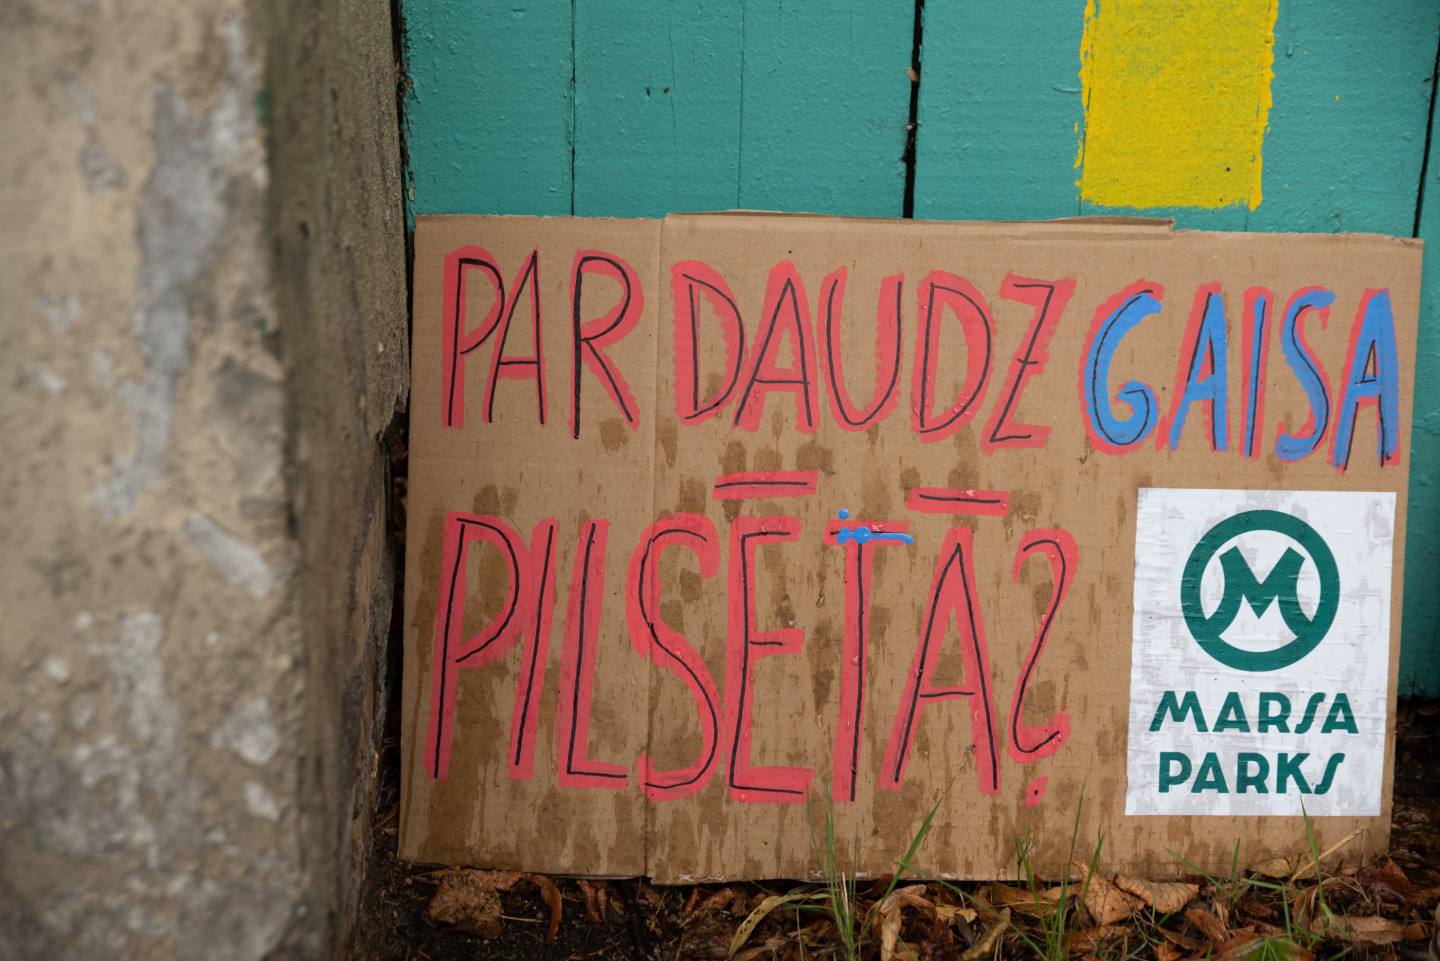 PAR DAUDZ GAISA
PILSĒTĀ?
M
MARSA
PARKS